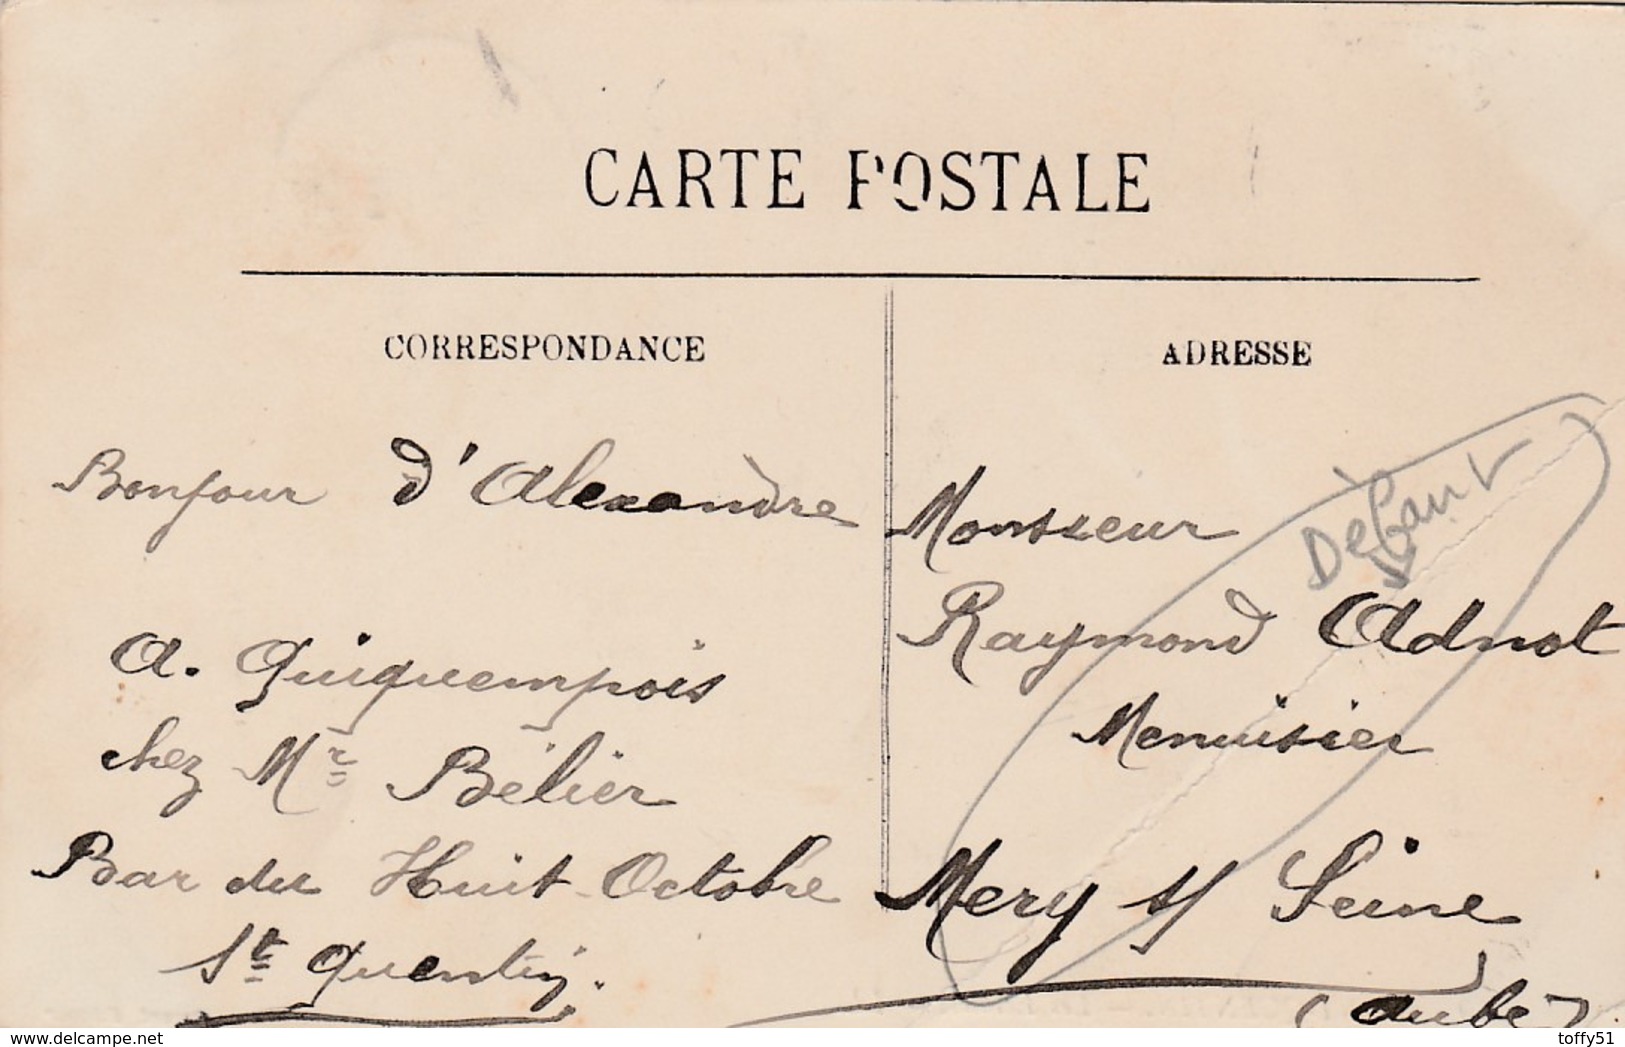 CARTE POSTALE
CORRESPONDANCE
Bonjour d'Alexandre
A. Quiquempois
chez Mr Bélier
Bar du Huit Octobre
St Quentin.
ADRESSE
Défaut
Monsieur
Raymond Adnot
Menuisier
Mery s/ Seine
(Aube)
delcampe.net
toffy51